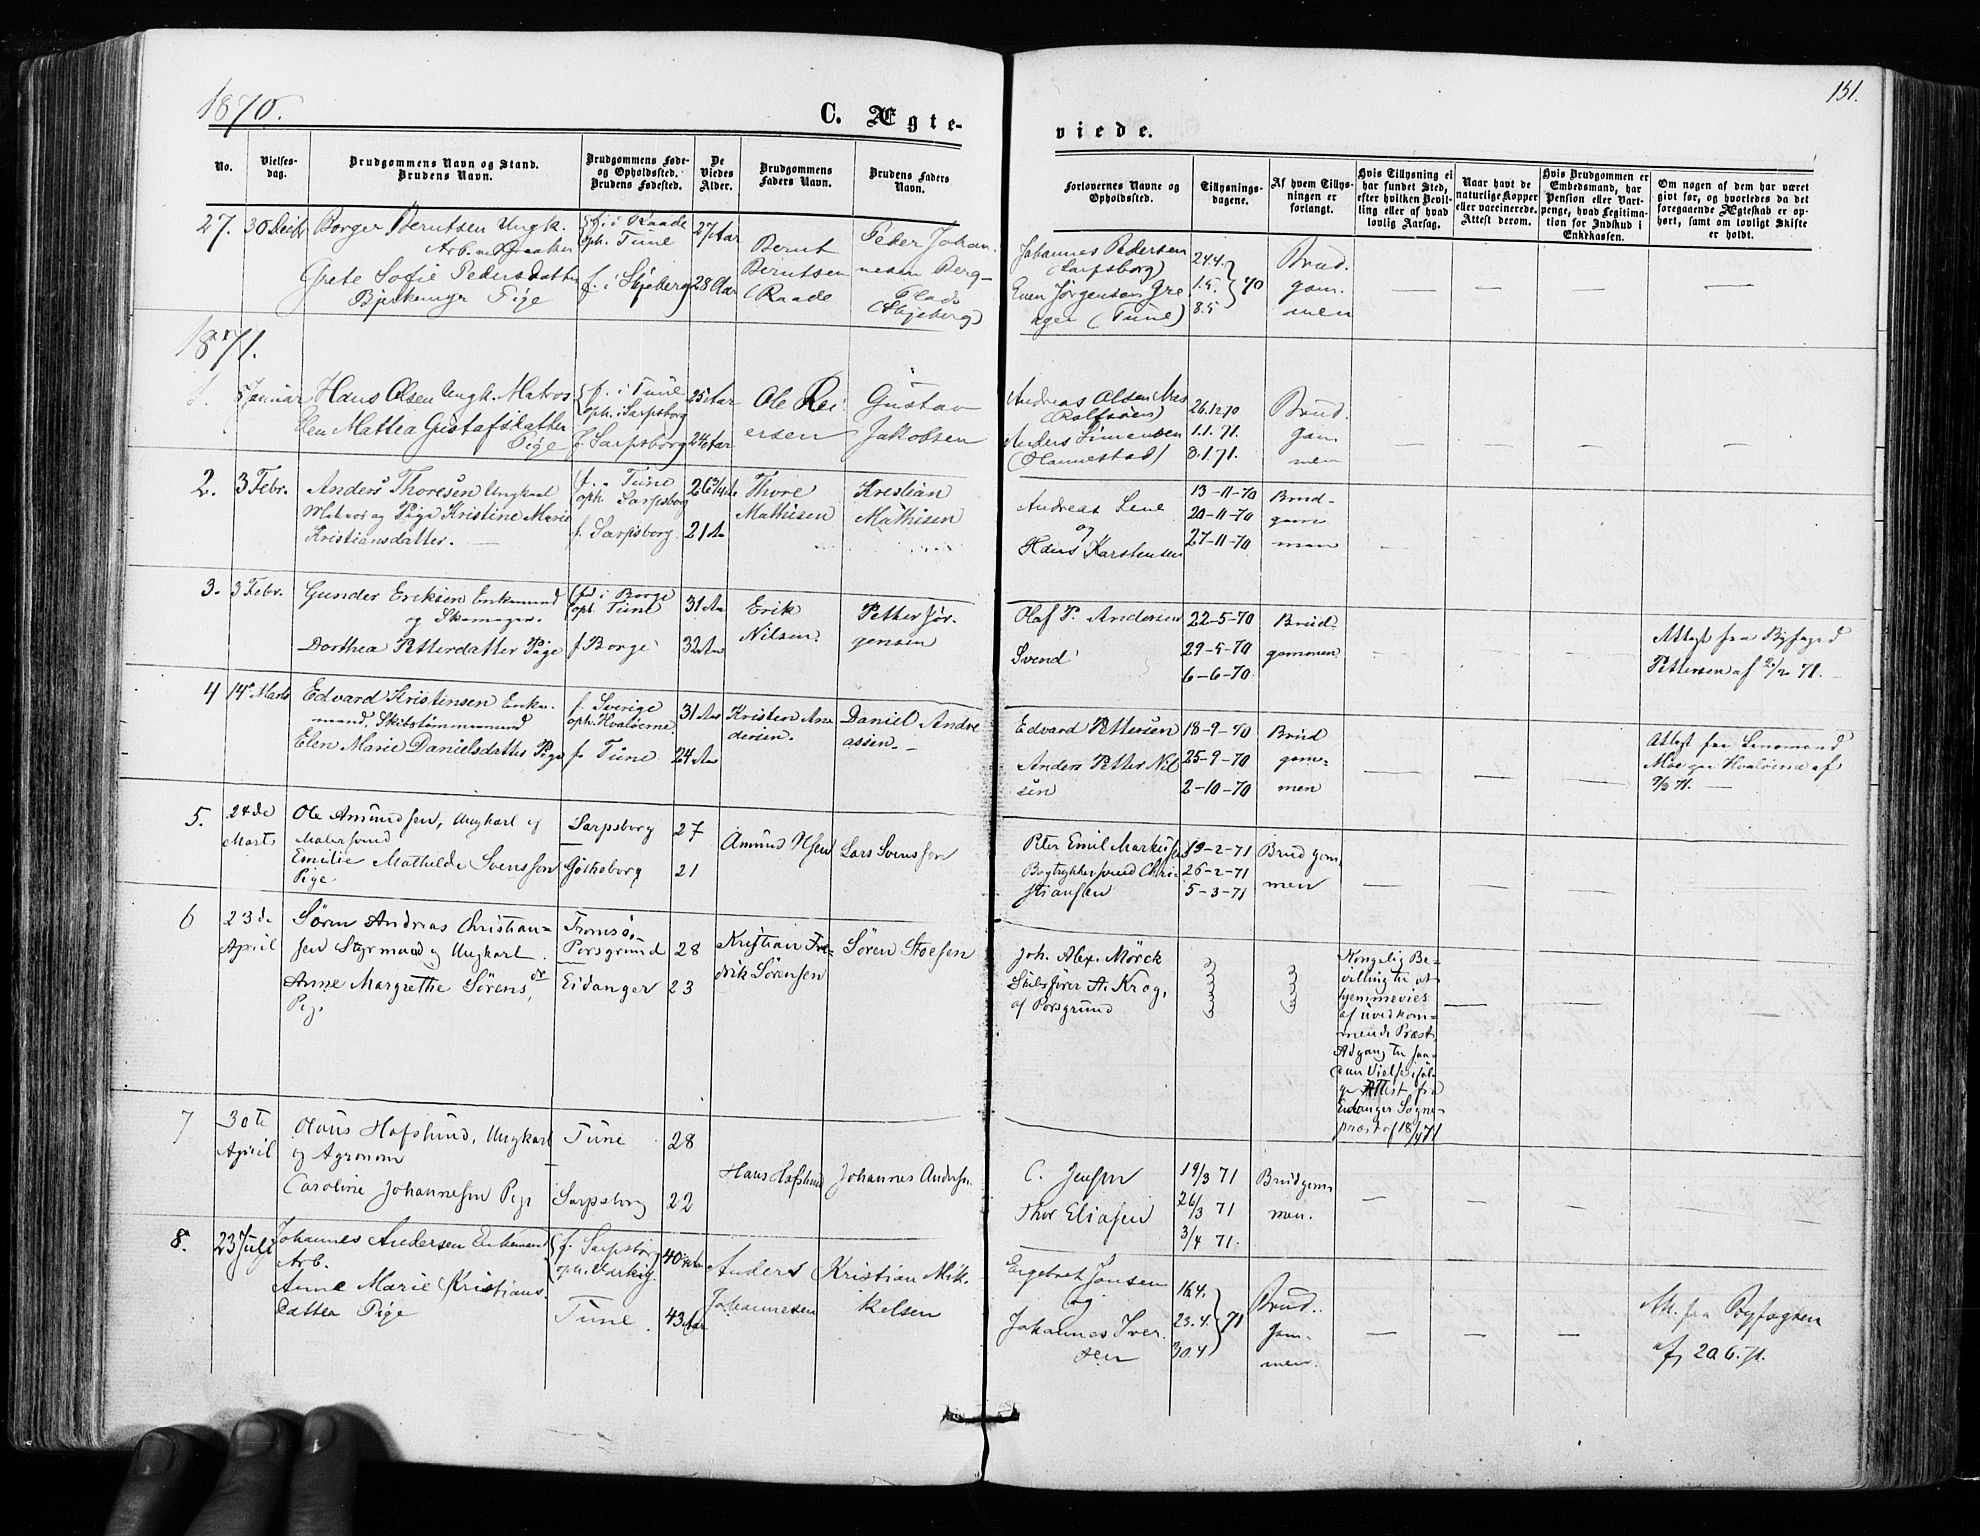 1870.
C. Ægte-
viede.
151.
No.
Vielses-
dag.
Brudgommens Navn og Stand.
Brudens Navn.
Brudgommens Føde-
og Opholdssted.
Brudens Fødested.
De
Viedes
Alder.
Brudgommens
Faders Navn.
Brudens Faders
Navn.
Forlovernes Navne og
Opholdssted.
Tillysnings-
dagene.
Af hvem Tillys-
ningen er
forlangt.
Hvis Tillysning ei
har fundet Sted,
efter hvilken Bevil-
ling eller af hvad
lovlig Aarsag.
Naar havt de
naturlige Kopper
eller vaccinerede.
Attest derom.
Hvis Brudgommen er
Embedsmand, har
Pension eller Vart-
penge, hvad Legitima-
tion for Indskud i
Enkekassen.
Om nogen af dem har været
givt før, og hvorledes da det
foregaaende Ægteskab er op-
hørt, samt om lovligt Skifte
er holdt.
27. 30
Borger Berntsen Ungk.
Grete Sofie Pedersdatter
Bjerkemyr Pige
f. i Raade
oph. Tune
f. i Skjeberg
27 Aar
28 Aar
Bernt
Berntsen
(Raade
Peder Johan-
nesen Berg-
Plads
(Skjeberg)
Johannes Pedersen
(Sarpsborg)
Even Jørgensen Gre
(Tune)
24.4.
1.5. 70
8.5
Brud.
gom.
men
1871.
1. 5 Januar
Hans Olsen Ungk. Matros
Mattea Gustafsdatter
Pige
f. i Tune
oph. i Sarpsborg
f. Sarpsborg
25 Aar
24 Aar
Ole Rei-
ersen
Gustav
Jakobsen
Andreas Olsen Næs
(Rolfsøen)
Anders Simensen
(Hannestad)
26.12.70
1.1.71.
8.1.71.
Brud.
gom.
men
2. 3 Febr.
Anders Thoresen Ungkarl
Matros og Pige Kristine Marie
Kristiansdatter.
f. Tune
oph. Sarpsborg
f. Sarpsborg.
26 3/4
21 Aa
Thore
Mathisen
Kristian
Mathisen
Andreas Lene
og
Hans Karstensen
13-11-70
20-11-70
27-11-70
Brud-
gom
men
3. 3 Febr.
Gunder Eriksen Enkemand
og Skomager.
Dorthea Petterdatter Pige
fød i Borge
oph. Tune
f. Borge
31 Aa
32 Aa
Erik
Nilsen.
Petter Jør-
gensen
Olaf P. Andersen
Svend
22-5-70
29-5-70
6-6-70
Brud-
gommen
Attest fra Byfoged
Pettersen af 71.
4 14de Marts
Edvard Kristensen Enke-
mand, Skibstømmermand
Elen Marie Danielsdatter Pige
f. Sverige
oph. Hvaløerne
f. Tune
31 Aa
24 Aa
Kristen An-
dersen.
Daniel Andre
assen.
Edvard Pettersen
Anders Petter Nil
sen
18-9-70
25-9-70
2-10-70
Brud
gom-
men
Attest fra Lensmand
Moe paa Hvaløerne af
71.
5. 24de
Marts
Ole Amundsen, Ungkarl og
Malersvend
Emilie Mathilde Svensson
Pige
Sarpsborg
Gøthaborg
27
21
Amund Olsen
Lars Svensson
Peter Emil Markusen
Bogtrykkersvend Chri-
stiansen
19-2-71
26-2-71
5-3-71
Brudgom-
men
6 23de
April
Søren Andreas Christian-
sen Styrmand og Ungkarl.
Anne Margrethe Sørensdr
Pige
Tromsø,
Porsgrund
Eidanger
28
23
Kristian Fre-
drik Sørensen
Søren Stoesen
Joh. Alex. Mörck
Skibsfører A. Krog,
af Porsgrund
Kongelig Be-
villing til at
hjemmevies
af uvedkom-
mende Præst,
Adgang til saa-
dan Vielse iføl-
ge Attest fra
Eidanger Sogne-
præst af 18/4 71
7 30te
April
Olaus Hafslund, Ungkarl
og Agronom
Caroline Johannesen Pige
Tune
Sarpsborg
28
22
Hans Hafslund
Johannes Andersen
C. Jensen
Thor Eliasen
19/3 71
26/3 71
3/4 71.
Brudgom-
men.
8. 23 Juli
Johannes Andersen Enkemand
Arb.
Anne Marie Kristians
datter Pige
f. Sarpsborg
oph. Varteig.
Tune
40
43 Aar
Anders
Johannesen
Kristian Mik-
kelsen
Engebret Jonsen
og
Johannes Iver-
sen
16.4.
23.4. 71
30.4
Brud..
gom-
men.
Att. fra Byfogden
af 20.6.71.